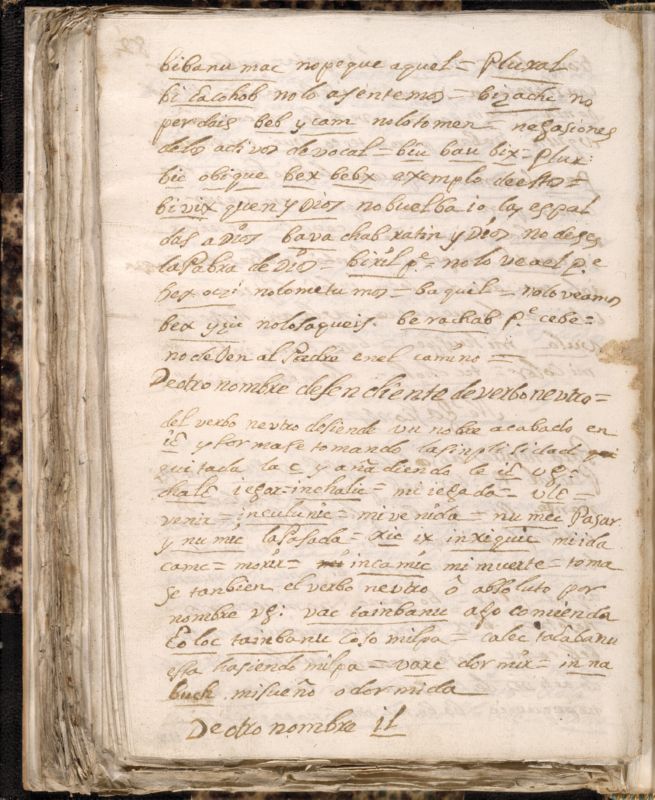 bibanu mac nopeque aquel = Plural
bi Cacohob nolo asentemos = bizachi no
perdais beb y cam nolo tomen = negasiones
delos activos de vocal = biu bau bix = Plur:
bic obique bex bebx exemplo de estos =
bivix quen y Dios nobuelba io las espal
das a Dios bava chab xatin y Dios no deges
la Pabra de Dios = bixil pe = nolo vea el pe
bex oczi nolometamos = baquil = nolo veamos
bex yzic nolosaqueis. be rachab pe cebe =
no le den al Padre enel camino =
De otro nombre desendiente de verbo nevtro =
del verbo nevtro desiende vn nobre acabado en
ic y formase tomando la sinplisidad
quitada la c y añadiendo le ic vg
chalc iegar = inchalic = mi iegada = vlc =
venir = inculunic = mi venida = numec Pasar
y numic la Pasada = xic ix inxiquic mi ida
camc = morir = incamic mi muerte = toma
se tanbien el verbo nevtro o absoluto por
nombre vg: vac tainbanu ago comienda
Coloc tainbanu coso milpa = caloc talabanu
esta hasiendo milpa = vaxe dormir = inna
buch misueño o dormida
De otro nombre il